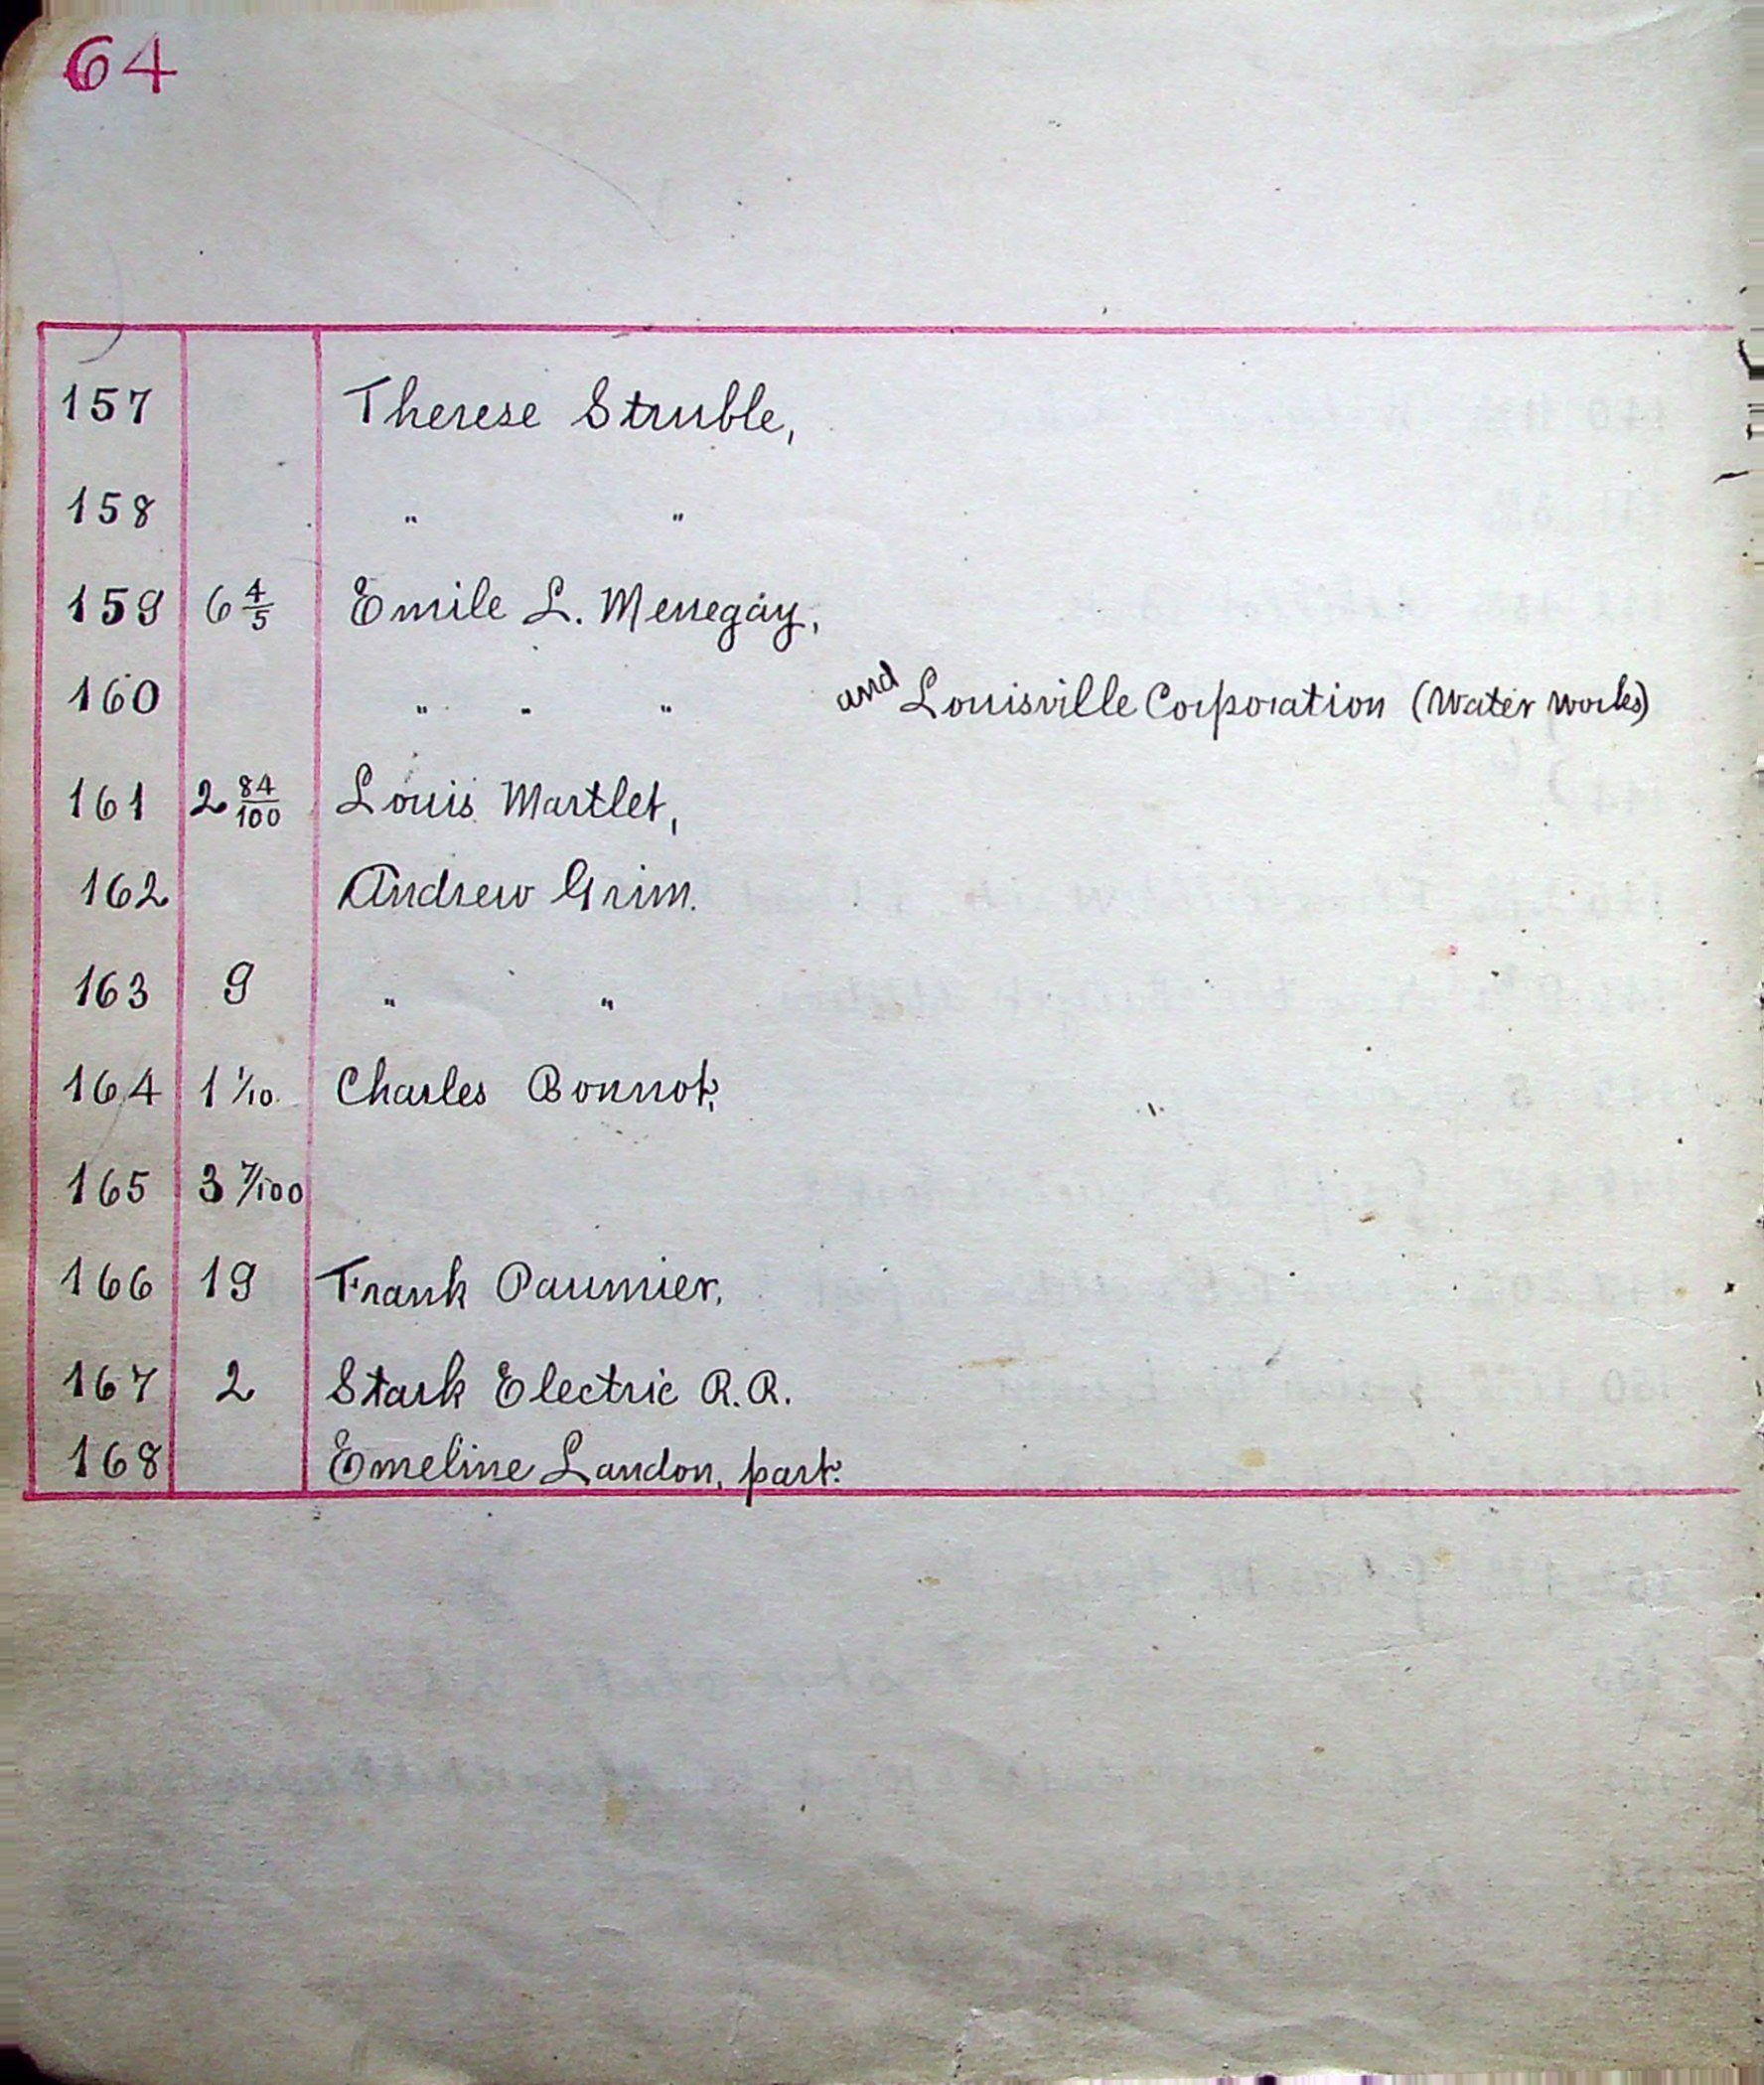 64
157 Therese Struble,
158 " "
159 6 4/5 Emile L. Menegay,
160 " " " and Louisville Corporation (Water Works)
161 2 84/100 Louis Martlet,
162 Andrew Grim.
163 9 " "
164 1 1/10 Charles Bonnot,
165 3 7/100
166 19 Frank Paumier,
167 2 Stark Electric R.R.
168 Emeline Landon, part.